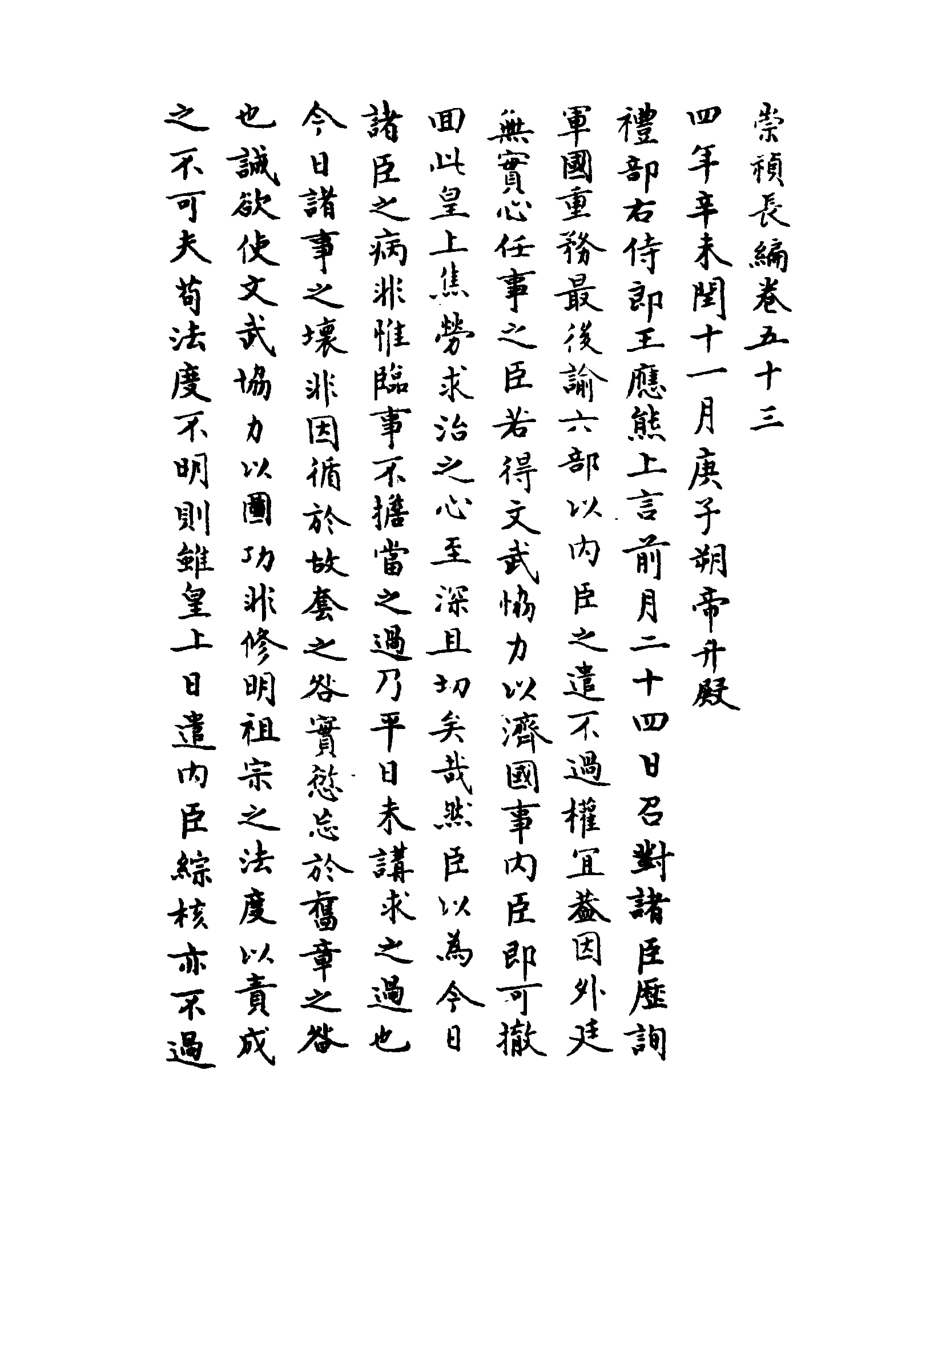 崇禎長編卷五十三
四年辛未閏十一月庚子朔帝升殿
禮部右侍郎王應熊上言前月二十四日召對諸臣歷詢
軍國重務最後諭六部以內臣之遣不過權宜蓋因外廷
無實心任事之臣若得文武恊力以濟國事內臣即可撤
回此皇上焦勞求治之心至深且切矣哉然臣以為今日
諸臣之病非惟臨事不擔當之過乃平日未講求之過也
今日諸事之壞非因循於故套之咎實愆忘於舊章之咎
也誠欲使文武協力以圖功非修明祖宗之法度以責成
之不可夫苟法度不明則雖皇上日遣內臣綜核亦不過